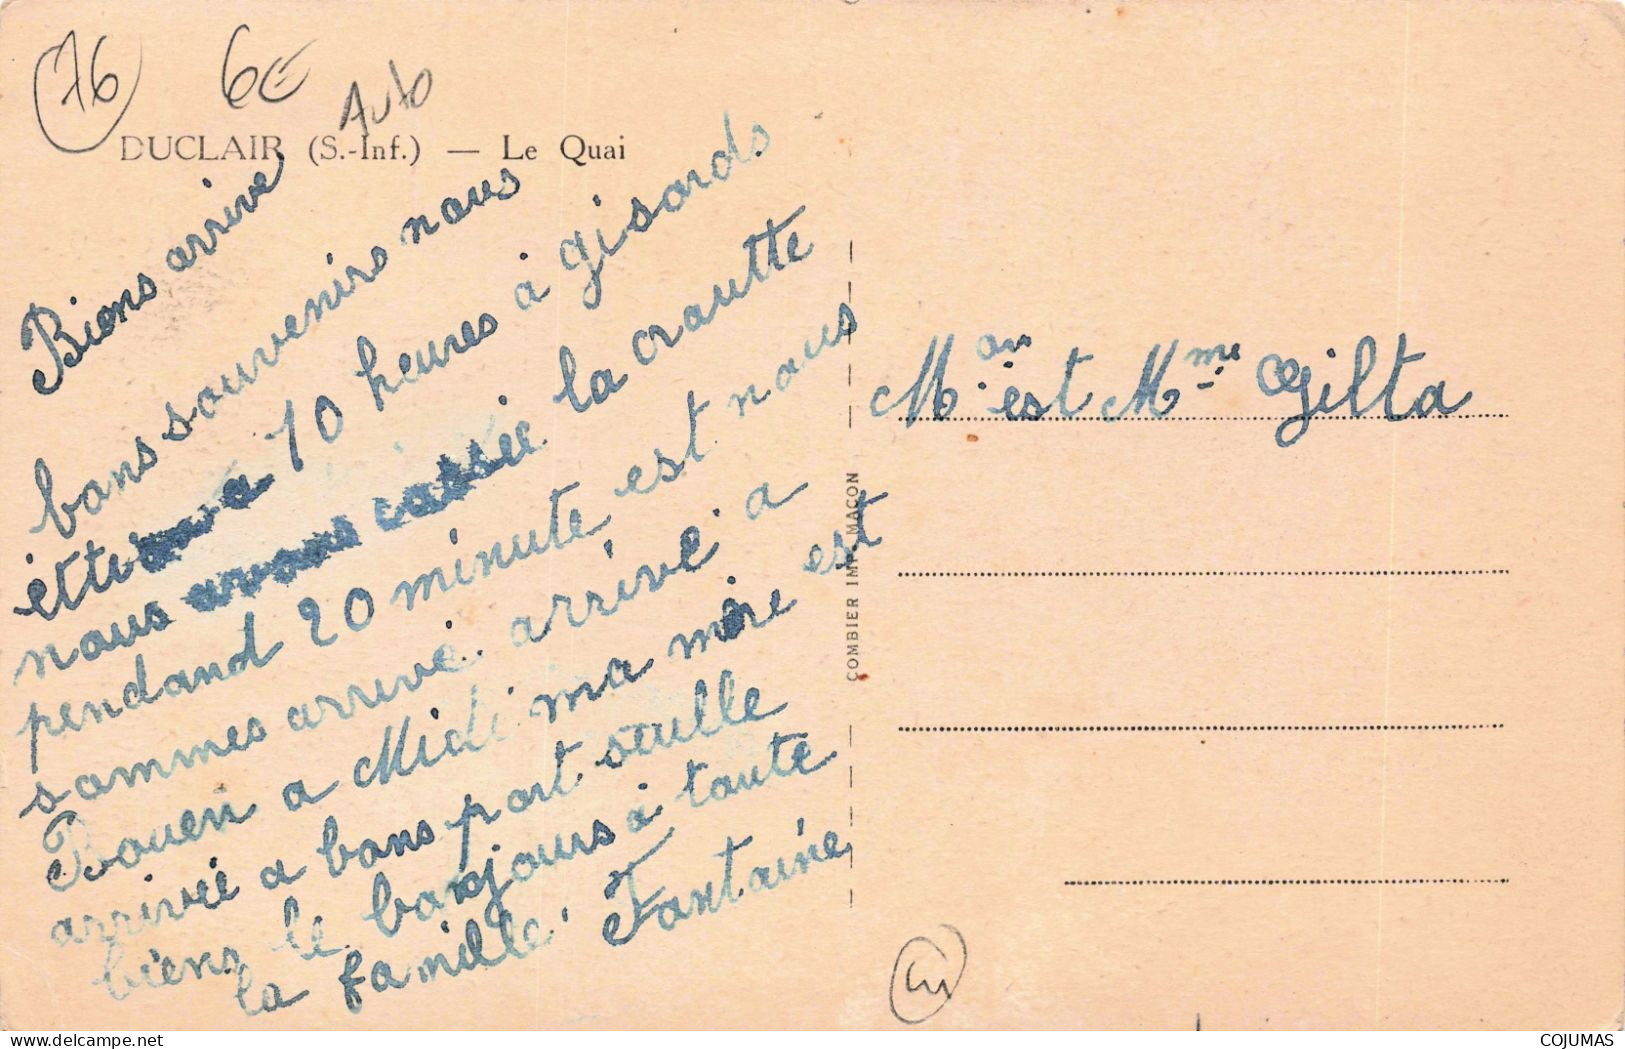 76
6€
Auto
DUCLAIR (S.-Inf.) — Le Quai
Biens arrive
bons souvenirs nous
étti a 10 heures à gisords
nous avons cassée la croutte
pendand 20 minute est nous
sommes arrivé arrivé a
Rouen a Midi ma mère est
arrivée a bons port seulle
biens le bonjours à toute
la famille Fontaine
COMBIER IMP. MACON
M. on est Mme Gilta
COJUMAS